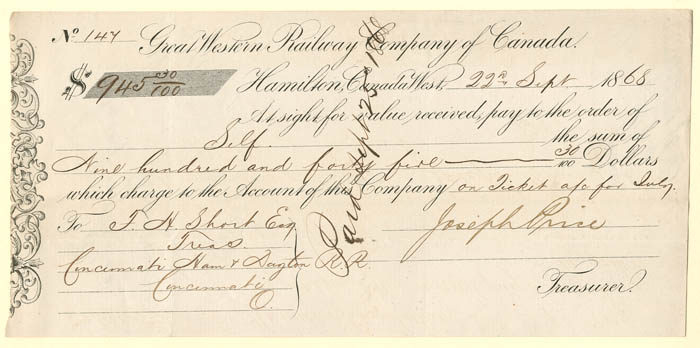 No 147 Great Western Railway Company of Canada.
$ 945 30/100 Hamilton, Canada West, 22nd Sept 1868
At sight for value received, pay to the order of
Self. the sum of
Nine hundred and forty five 30/100 Dollars
which charge to the Account of this Company on Ticket a/c for July.
To F. H. Short Esq
Treas.
Cincinnati Ham & Dayton R.R.
Cincinnati
O.
Joseph Price
Treasurer.
Paid Sept 25 1868